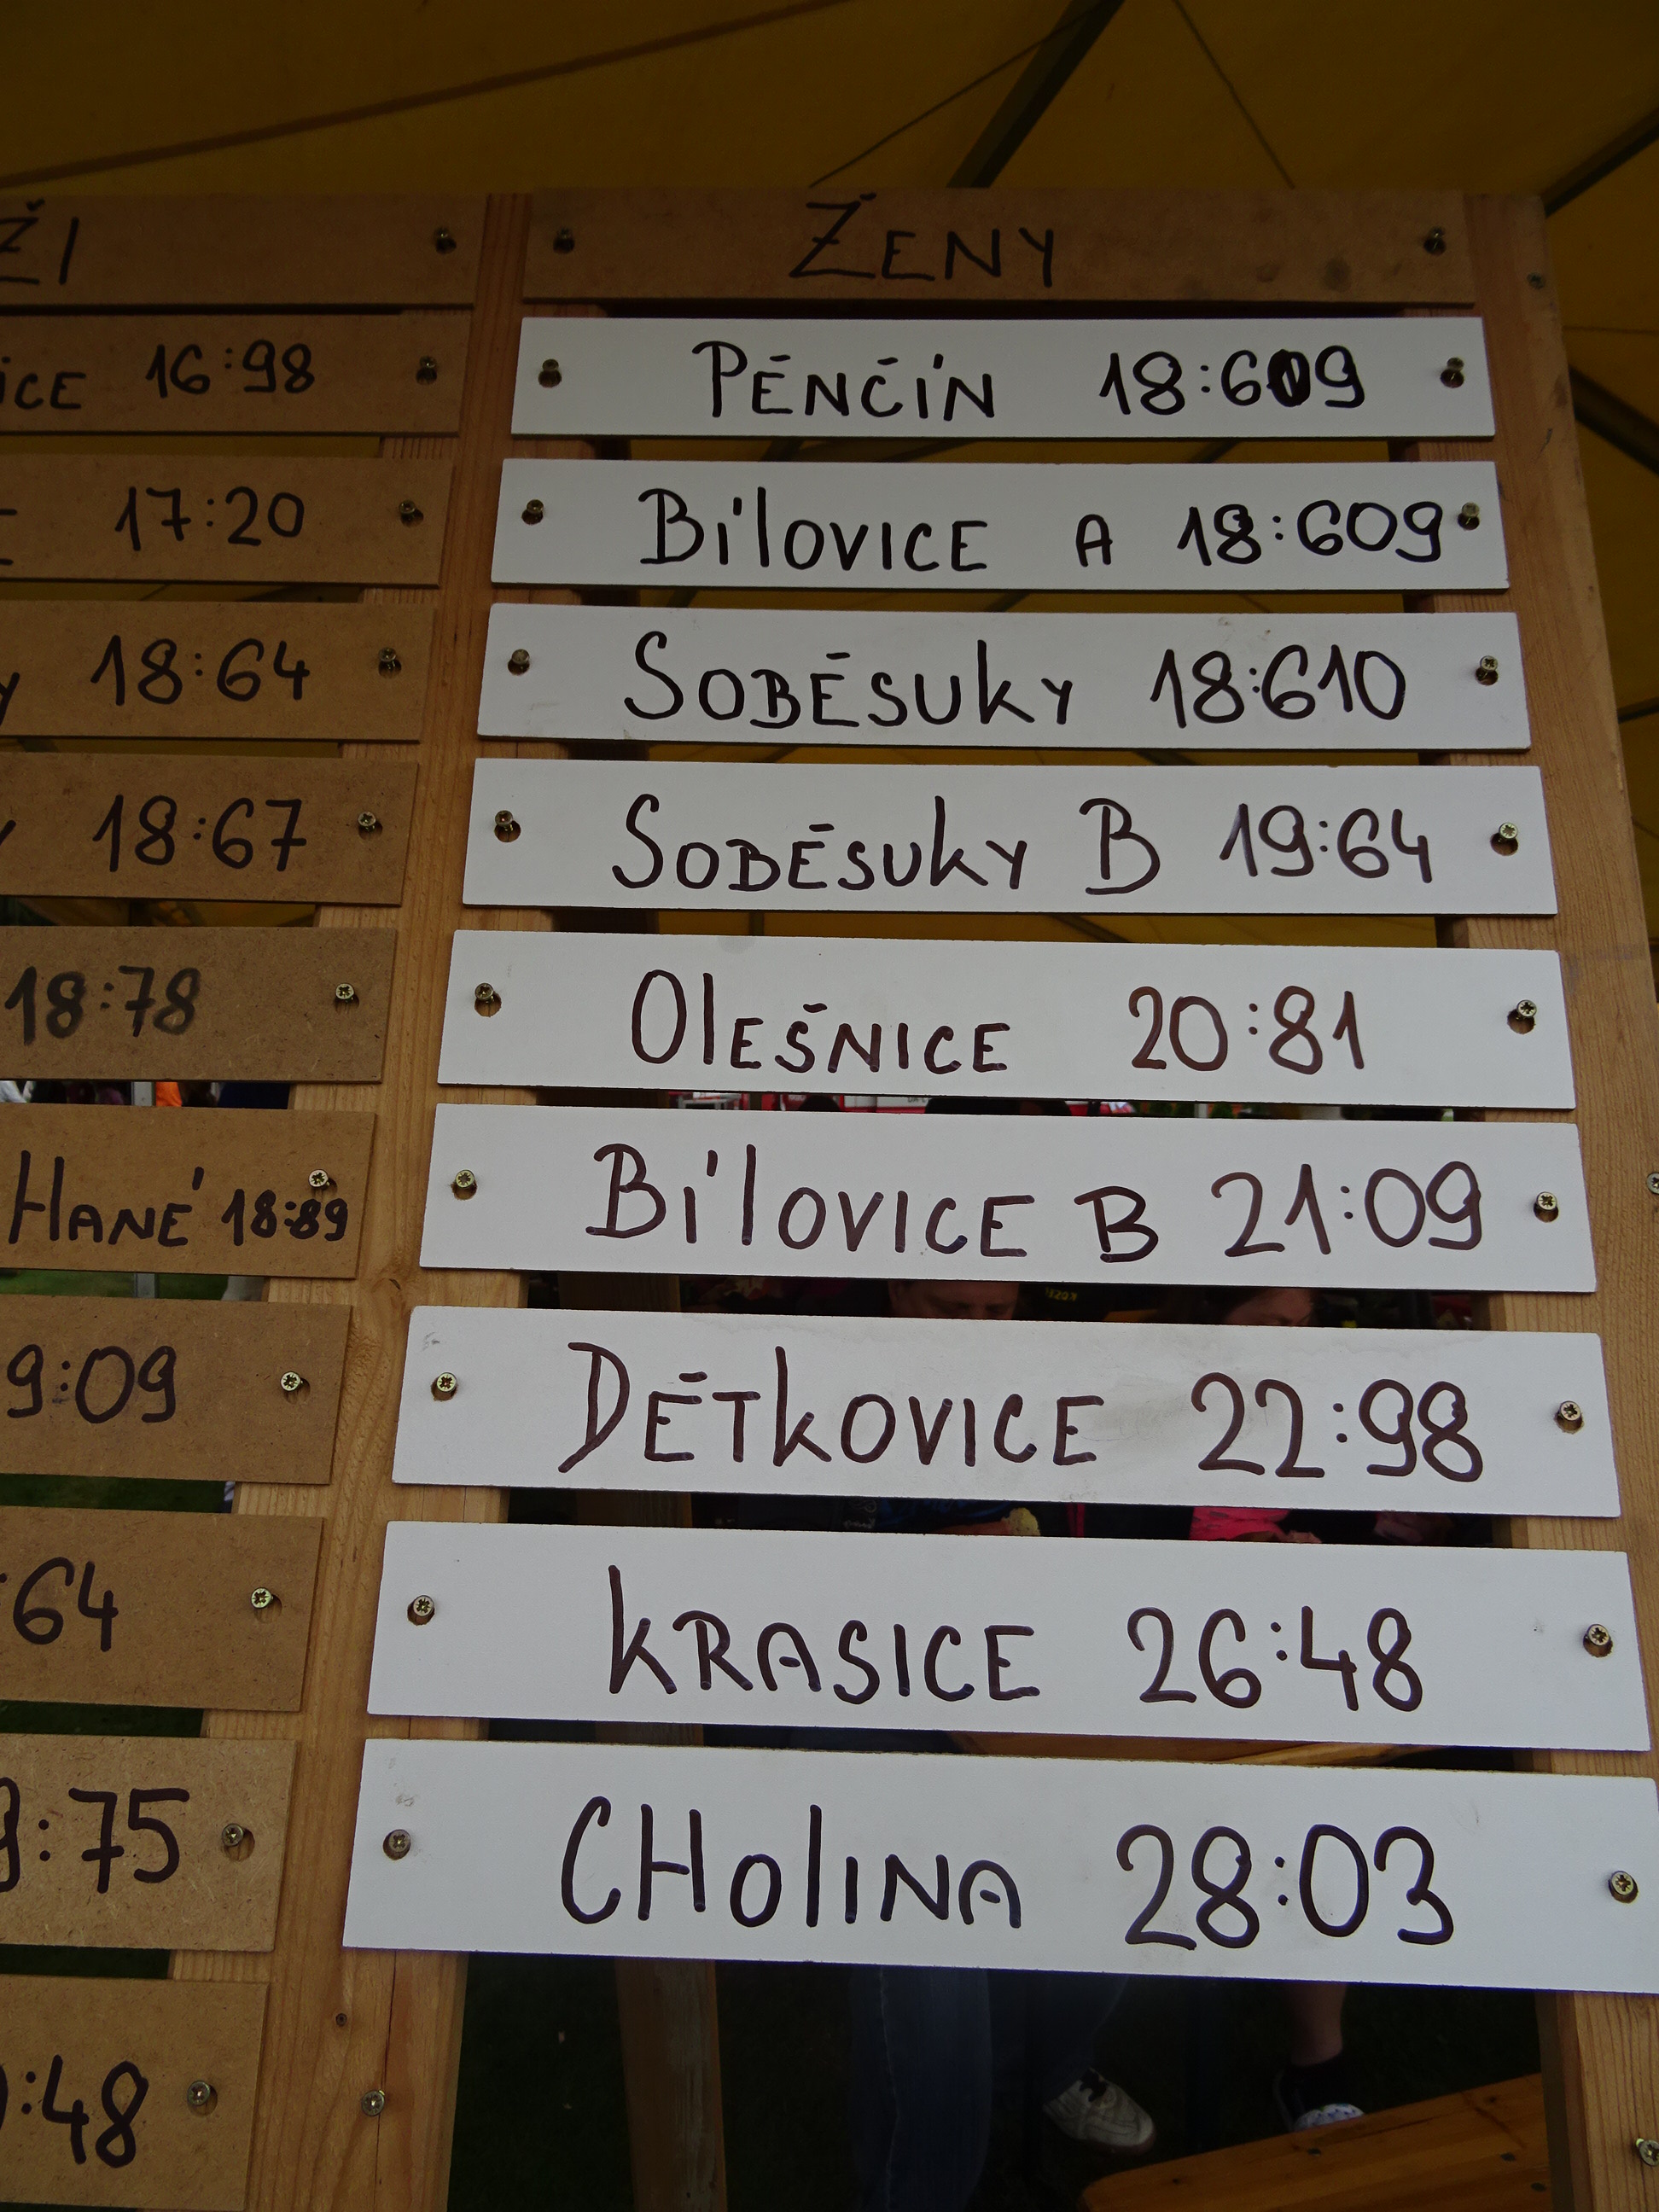 ŽI
ICE 16:98
17:20
Y 18:64
18:67
18:78
HANÉ 18:89
9:09
:64
:75
:48
ŽENY
PĒNČÍN 18:609
BÍLOVICE A 18:609
SOBĒSUKY 18:610
SOBĒSUKY B 19:64
OLEŠNICE 20:81
BÍLOVICE B 21:09
DĒTKOVICE 22:98
KRASICE 26:48
CHOLINA 28:03